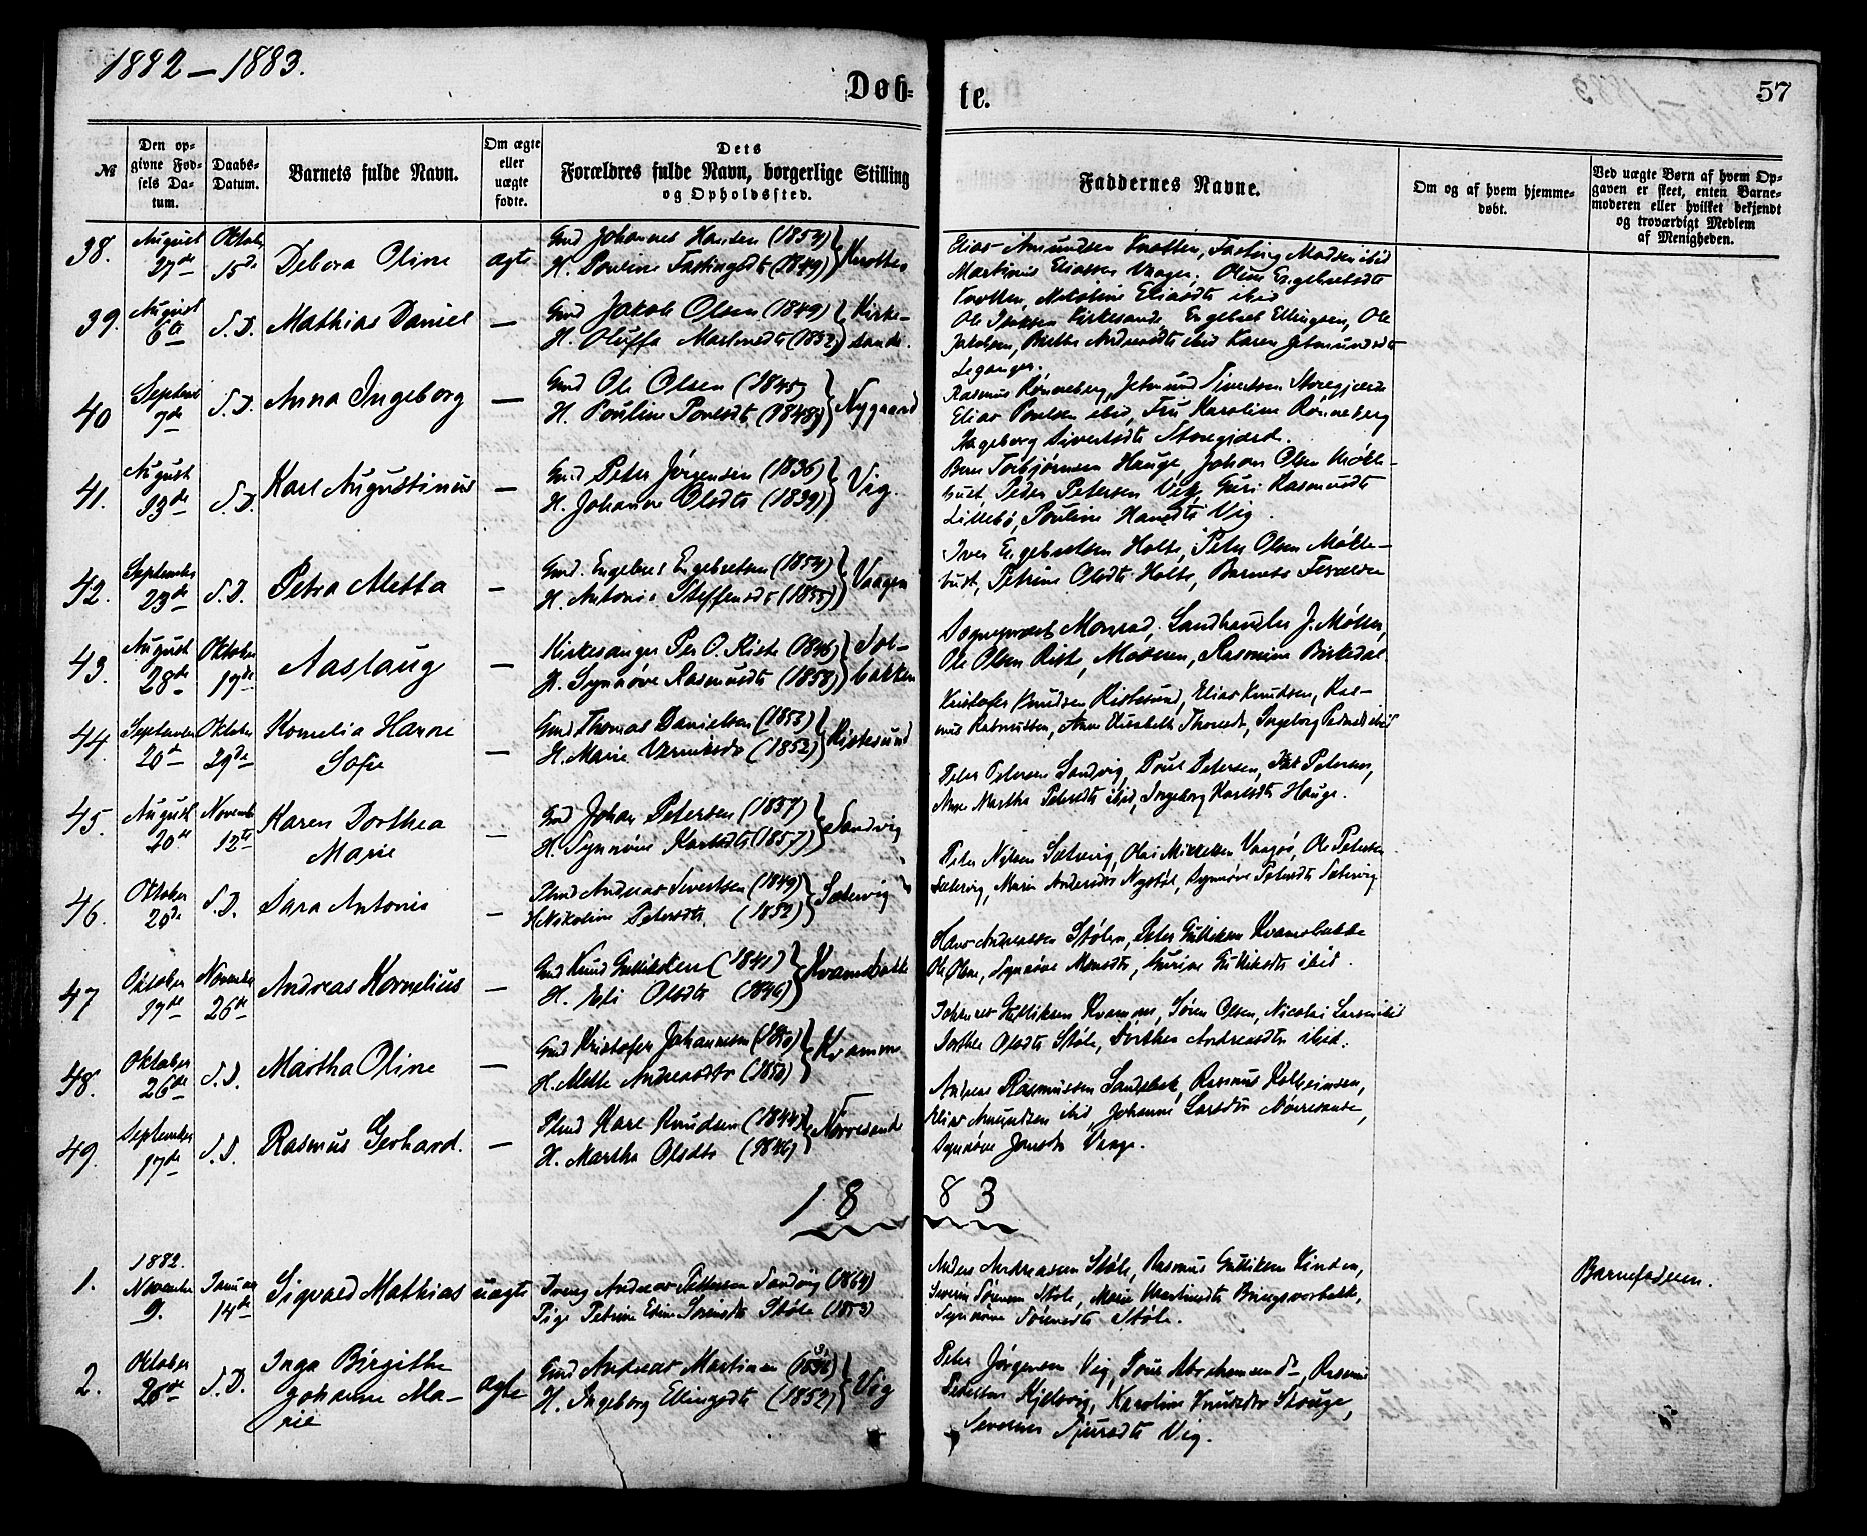 1882 – 1883.
Døb-
te.
57
№
Den op-
givne Fød-
sels Da-
tum.
Daabs-
Datum.
Barnets fulde Navn.
Om ægte
eller
uægte
fødte.
Dets
Forældres fulde Navn, borgerlige Stilling
og Opholdssted.
Faddernes Navne.
Om og af hvem hjemme-
døbt.
Ved uægte Børn af hvem Op-
gaven er skeet, enten Barne-
moderen eller hvilket bekjendt
og troværdigt Medlem
af Menigheden.
38. August 27de Oktober 15de Debora Oline ægte Gmd Johannes Hansen (1854) H. Pauline Fastingsdt (1849) Knotten
Elias Amundsen Knotten, Fasting Madsen ibid
Martinus Eliassen Vaagen, Oline Engebretsdt
Knotten, Nikoline Eliasdt ibid
39. August 6te S.D. Mathias Daniel — Gmd Jakob Olsen (1849) H. Oluffa Martinsdt (1852) Kirke-
sande.
Ole Kirkesande, Engebret Ellingsen, Ole
Jakobsen, Birthe Andreasdt ibid Karen Jetmundsdt
Leganger.
40 September 7de S.D. Anna Ingeborg — Gmd Ole Olsen (1845) H. Pouline Povelsdt (1848) Nygaard
Rasmus Rønneberg, Jetmund Sivertsen Storegjerde
Elias Poulsen ibid, Fru Karoline Rønneberg
Ingeborg Sivertsdt Storegjerde.
41. August 13de S.D. Karl Augustinus — Gmd Peter Jørgensen (1836) H. Johanne Olsdt (1839) Vig.
Bern Torbjørnsen Hauge, Johan Olsen Møkle-
bust, Peder Petersen Vig, Guri Rasmusdt
Lillebø, Pouline Hansdt Vig.
42. September 23de S.D. Petra Metta — Gmd. Engebret Engebretsen (1854) H. Antonie Steffensdt (1855) Vaagen
Iver Engebretsen Holte, Peter Olsen Møkle-
bust, Petrine Olsdt Holte, Barnets Forældre
43. August 28de Oktober 17de Aaslaug — Kirkesanger Per O. Riste (1846) H. Synnøve Rasmusdt (1858) Sol-
bakken
Sogneprest Monrad, Landhandler J. Møller,
Ole Olsen Riste, Moderen, Rasmine Birkedal.
44. September 20de Oktober 29de Kornelia Hanne
Sofie — Gmd Thomas Danielsen (1853) H. Marie (1852) Ristesund
Kristofer Knudsen Ristesund, Elias Knudsen, Ras-
mus Rasmussen, Ane Elisabeth Ingeborg ibid
45. August 20de November 12te Karen Dorthea
Marie — Gmd Johan Petersen (1857) H. Synnøve Karlsdt (1857) Sandvig
Peter Petersen Sandvig, Poul Petersen, Petersen,
Ane Martha Petersdt ibid, Ingeborg Karlsdt Hauge.
46. Oktober 20de S.D. Sara Antonie — Plmd Andreas Sivertsen (1849) H Nikoline Petersdt. (1852) Sætervig
Peter Nilsen Sætervig, Olai Mikkelsen Vaagø, Ole Petersen
Sætervig, Marie Andersdt Nystøl, Synnøve Petersdt Sætervig
47 Oktober 17de November 26de Andreas Kornelius — Gmd Knud Gulliksen (1841) H. Eli Olsdt (1846) Kvamsbakke
Hans Andreassen Stølen, Peter Gulliksen Kvamsbakke
Ole Olsen, Synnøve Monsdt, Gurine Gulliksdt ibid.
48. Oktober 26de S.D. Martha Oline — Gmd Kristofer Johannesen (1850) H. Mette Andreasdt (1850) Kvamme
Johannes Gulliksen Kvamme, Søren Olsen, Nicolai Larsen ibid
Dorthe Olsdt Støle, Dorthea Andreasdt ibid.
49. September 17de S.D. Rasmus Gerhard. — Plmd Karl Knudsen (1844) H. Martha Olsdt (1846) Nørresande
Andreas Rasmussen Sandsbak, Rasmus Kolbeinsen,
Elias Amundsen ibid, Johanne Larsdt Nørresande,
Synnøve Jonsdt Vaage.
1883
1. 1882. November 9. Januar 14de Sigvald Mathias uægte Andreas Pettersen Sandvig (1864)
Pige Petrine Eline Sørensdt Støle (1853)
Anders Andreassen Støle, Rasmus Gulliksen Linden,
Severin Sørensen Støle, Marie Martinsdt Bringsvorbakk,
Synnøve Sørensdt Støle.
Barnefaderen.
2. Oktober 28de S.D. Inga Birgithe
Johanne Ma-
rie ægte Gmd Andreas Martinsen H. Ingeborg Ellingsdt (1852) Vig
Peter Jørgensen Vig, Poul Abrahamsen do, Rasmus
Pedersen Hjelvig, Karoline Knudsdt Stouge,
Severine Sjursdt Vig.